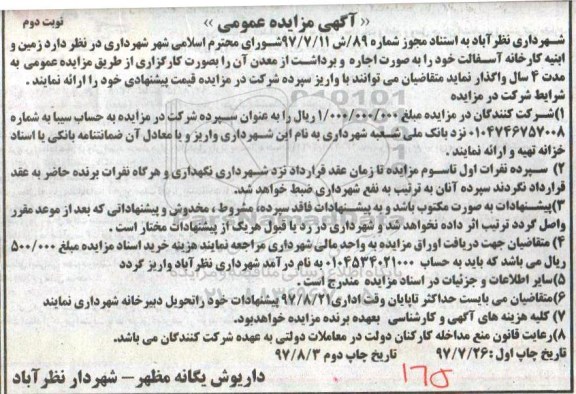 « آگهی مزایده عمومی »
نوبت دوم
شهرداری نظرآباد به استناد مجوز شماره ۸۹/ش ۹۷/۷/۱۱شورای محترم اسلامی شهر شهرداری در نظر دارد زمین و
ابنیه کارخانه آسفالت خود را به صورت اجاره و برداشت از معدن آن را بصورت کارگزاری از طریق مزایده عمومی به
مدت ۴ سال واگذار نماید متقاضیان می توانند با واریز سپرده شرکت در مزایده قیمت پیشنهادی خود را ارائه نمایند .
شرایط شرکت در مزایده
۱)شرکت کنندگان در مزایده مبلغ ۱/۰۰۰/۰۰۰/۰۰۰ ریال را به عنوان سپرده شرکت در مزایده به حساب سیبا به شماره
۰۱۰۴۷۴۶۷۵۷۰۰۸ نزد بانک ملی شعبه شهرداری به نام این شهرداری واریز و یا معادل آن ضمانتنامه بانکی یا اسناد
خزانه تهیه و ارائه نمایند .
۲) سپرده نفرات اول تاسوم مزایده تا زمان عقد قرارداد نزد شهرداری نگهداری و هرگاه نفرات برنده حاضر به عقد
قرارداد نگردند سپرده آنان به ترتیب به نفع شهرداری ضبط خواهد شد.
۳)پیشنهادات به صورت مکتوب باشد و به پیشنهادات فاقد سپرده ، مشروط ، مخدوش و پیشنهاداتی که بعد از موعد مقرر
واصل گردد ترتیب اثر داده نخواهد شد و شهرداری در رد یا قبول هریک از پیشنهادات مختار است .
۴) متقاضیان جهت دریافت اوراق مزایده به واحد مالی شهرداری مراجعه نمایند هزینه خرید اسناد مزایده مبلغ ۵۰۰/۰۰۰
ریال می باشد که باید به حساب ۰۱۰۴۵۳۴۰۲۱۰۰۰ به نام درآمد شهرداری نظرآباد واریز گردد
۵)سایر اطلاعات و جزئیات در اسناد مزایده مندرج است .
۶)متقاضیان می بایست حداکثر تاپایان وقت اداری۹۷/۸/۲۱ پیشنهادات خود راتحویل دبیرخانه شهرداری نمایند
۷) کلیه هزینه های آگهی و کارشناسی بعهده برنده مزایده خواهدبود.
۸)رعایت قانون منع مداخله کارکنان دولت در معاملات دولتی به عهده شرکت کنندگان می باشد.
تاریخ چاپ اول :۹۷/۷/۲۶ تاریخ چاپ دوم ۹۷/۸/۳
داریوش یگانه مظهر – شهردار نظرآباد